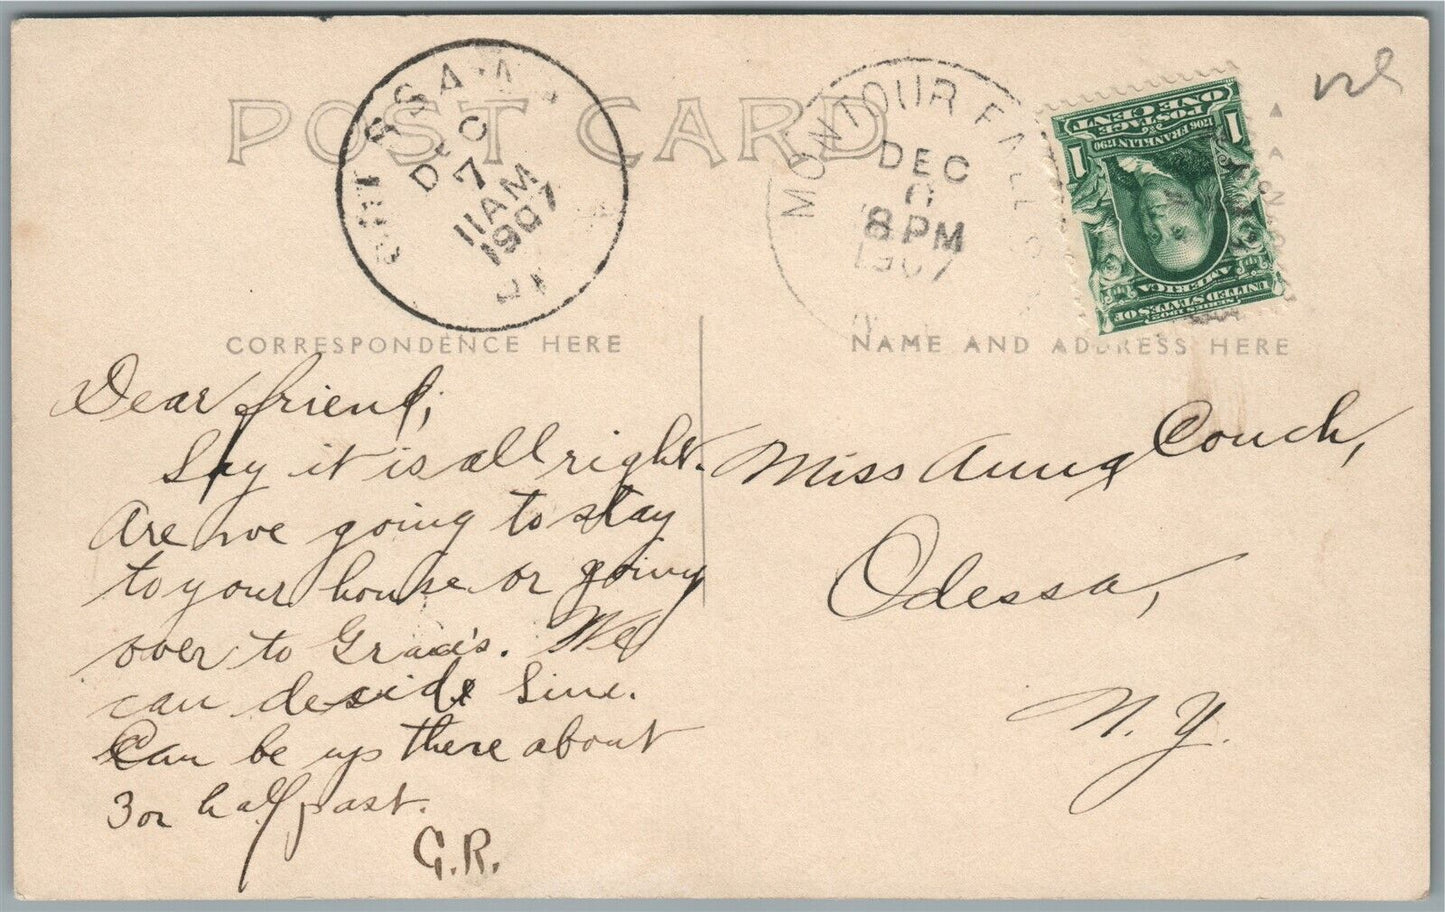 POST CARD
DEC
7
11 AM
1907
MONTOUR FALLS
DEC
6
8 PM
1907
1 POSTAGE ONE CENT 1
1706 FRANKLIN 1790
SERIES 1902
UNITED STATES OF
AMERICA
CORRESPONDENCE HERE
NAME AND ADDRESS HERE
Dear friend,
Say it is all right.
Are we going to stay
to your house or going
over to Grace's. We
can deside
Can be up there about
3 or half past.
G.R.
Miss Anna Couch,
Odessa,
N.Y.